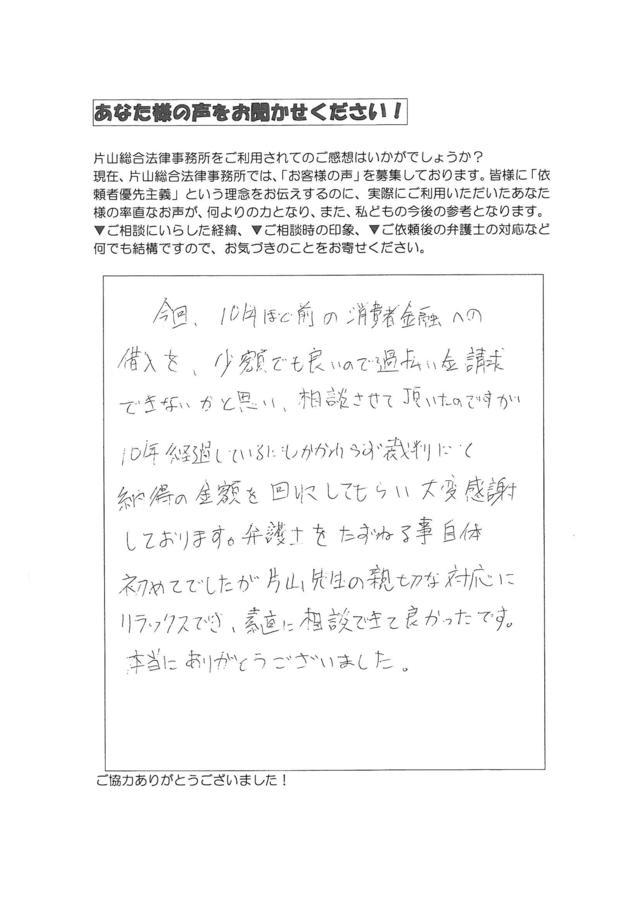 あなた様の声をお聞かせください!
片山総合法律事務所をご利用されてのご感想はいかがでしょうか?
現在、片山総合法律事務所では、「お客様の声」を募集しております。皆様に「依
頼者優先主義」という理念をお伝えするのに、実際にご利用いただいたあなた
様の率直なお声が、何よりの力となり、また、私どもの今後の参考となります。
▼ご相談にいらした経緯、▼ご相談時の印象、▼ご依頼後の弁護士の対応など
何でも結構ですので、お気づきのことをお寄せください。
今回、10年ほど前の消費者金融への
借入を、少額でも良いので過払い金請求
できないかと思い、相談させて頂いたのですが
10年経過しているにもかかわらず裁判にて
納得の金額を回収してもらい大変感謝
しております。弁護士をたずねる事自体
初めてでしたが片山先生の親切な対応に
リラックスでき、素直に相談できて良かったです。
本当にありがとうございました。
ご協力ありがとうございました!